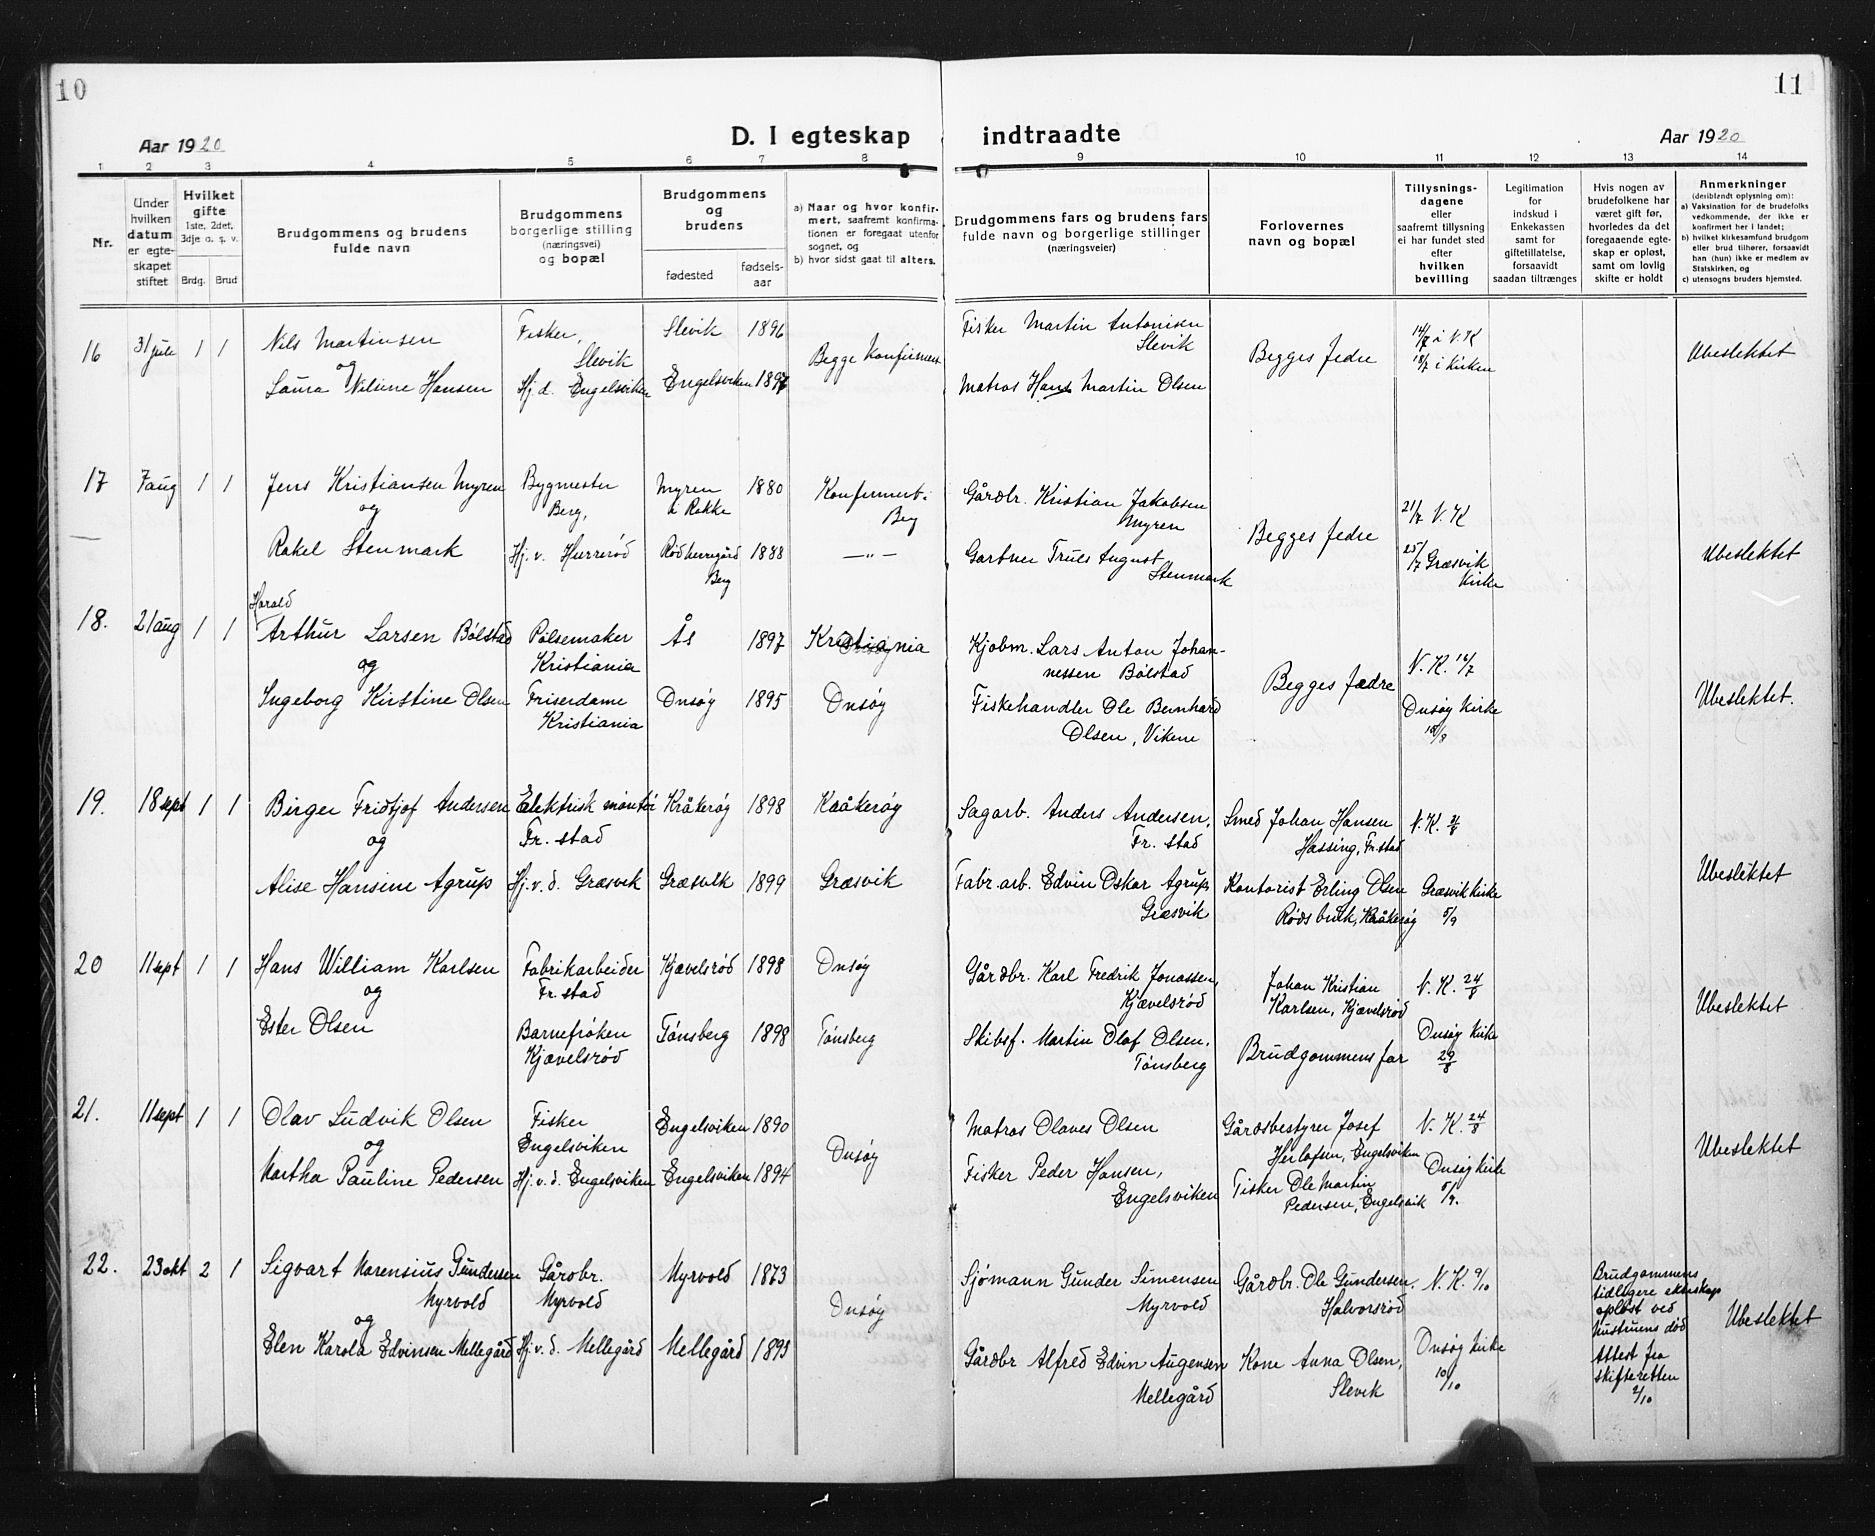 10
11
Aar 1920
D. I egteskap indtraadte
Aar 1920
1 2 3 4 5 6 7 8 9 10 11 12 13 14
Nr.
Under hvilken datum er egteskapet stiftet
Hvilket gifte
1ste, 2det, 3dje o. s. v.
Brdg. Brud
Brudgommens og brudens fulde navn
Brudgommens borgerlige stilling (næringsvei) og bopæl
Brudgommens og brudens
fødested
fødselsaar
a) Naar og hvor konfirmert, saafremt konfirmationen er foregaat utenfor sognet, og
b) hvor sidst gaat til alters.
Brudgommens fars og brudens fars fulde navn og borgerlige stillinger (næringsveier)
Forlovernes navn og bopæl
Tillysningsdagene eller saafremt tillysning ei har fundet sted efter hvilken bevilling
Legitimation for indskud i Enkekassen samt for giftetillatelse, forsaavidt saadan tiltrænges
Hvis nogen av brudefolkene har været gift før, hvorledes da det foregaaende egteskap er opløst, samt om lovlig skifte er holdt
Anmerkninger (deriblendt oplysning om):
a) Vaksination for de brudefolks vedkommende, der ikke er konfirmert her i landet;
b) hvilket kirkesamfund brudgom eller brud tilhører, forsaavidt han (hun) ikke er medlem av Statskirken, og
c) utensogns bruders hjemsted.
16 31 juli 1 1 Nils Martinsen Fisker, Slevik Slevik 1896 Begge Konfirmert Fisker Martin Antonisen Slevik Begges fedre 14/7 i V. K
18/7 i Kirken Ubeslektet
og
Laura Nilsine Hansen Hj. d. Engelsviken Engelsviken 1897 Matros Hans Martin Olsen
17 7 aug 1 1 Jens Kristiansen Myren Bygmester Berg, Myren i Rokke 1880 Konfirmert i Berg Gårdbr. Kristian Jakobsen Myren Begges fedre 21/7 V. K
og
Rakel Stenmark Hj. v. Hurrerød Rødsherregård Berg 1888 —"— Gartner Truls August Stenmark 25/7 Græsvik Kirke Ubeslektet
18. 21 aug 1 1 Harald Arthur Larsen Bølstad Pølsemaker Kristiania Ås 1897 Kristiania Kjøbm. Lars Anton Johannessen Bølstad Begges fædre V. K. 16/7
og
Ingeborg Kirstine Olsen Friserdame Kristiania Onsøy 1895 Onsøy Fiskehandler Ole Bernhard Olsen, Vikene Onsøy Kirke 15/8 Ubeslektet.
19. 18 sept 1 1 Birger Fridtjof Andersen Elektrisk montør Fr. stad Kråkerøy 1898 Kråkerøy Sagarb. Anders Andersen, Fr. stad Smed Johan Hansen Hassing, Fr. stad V. K.
og
Alise Hansine Agrup Hj. v. d. Græsvik Græsvik 1899 Græsvik Fabr. arb. Edvin Oskar Agrup, Græsvik Kontorist Erling Olsen Rødsbruk, Kråkerøy Græsvik Kirke 5/9 Ubeslektet
20 11 sept 1 1 Hans William Karlsen Fabrikarbeider Fr. stad Kjævelsrød 1898 Onsøy Gårdbr. Karl Fredrik Jonassen, Kjævelsrød Johan Kristian Karlsen, Kjævelsrød V. K. 24/8
og
Ester Olsen Barnefrøken Kjævelsrød Tønsberg 1898 Tønsberg Skibsf. Martin Olaf Olsen, Tønsberg Brudgommens far Onsøy Kirke 29/8 Ubeslektet
21. 11 sept 1 1 Olav Ludvik Olsen Fisker Engelsviken Engelsviken 1890 Onsøy Matros Olaves Olsen Gårdsbestyrer Josef Herlofsen, Engelsviken V. K. 24/8
og
Martha Pauline Pedersen Hj. v. d. Engelsviken Engelsviken 1894 Fisker Peder Hansen, Engelsviken Fisker Ole Martin Pedersen, Engelsvik Onsøy Kirke 5/9. Ubeslektet
22. 23 okt 2 1 Sigvart Marensius Gundersen Myrvold Gårdbr. Myrvold Myrvold 1873 Onsøy Sjømann Gunder Simensen Myrvold Gårdbr. Ole Gundersen, Halvorsrød V. K. 9/10 Brudgommens tidligere ekteskap opløst ved hustruens død Attest fra skifteretten 2/10 Ubeslektet
og
Elen Karola Edvinsen Mellegård Hj. v. d. Mellegård Mellegård 1895 Gårdbr Alfred Edvin Augensen Mellegård Kone Anna Olsen, Slevik Onsøy Kirke 10/10